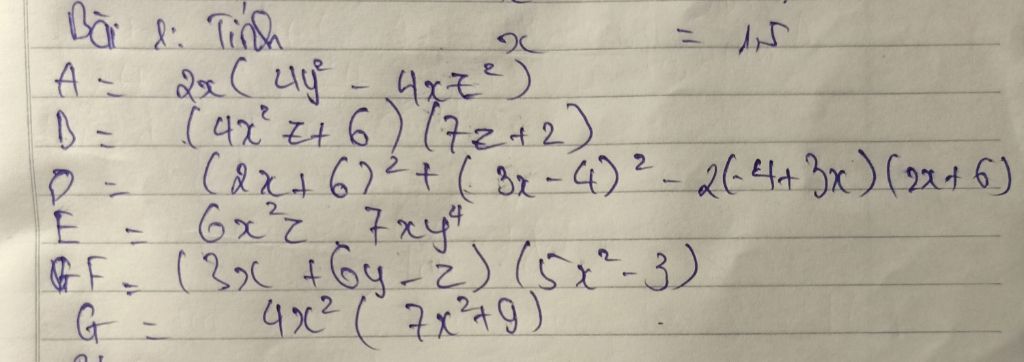 Bài 1: Tính x = 1,5
A = 2x( 4y² - 4xz²)
B = (4x²z + 6)(7z + 2)
D = (2x + 6)² + (3x - 4)² - 2(-4 + 3x)(2x + 6)
E = 6x²z 7xy⁴
F = (3x + 6y - z)(5x² - 3)
G = 4x²( 7x² + 9)